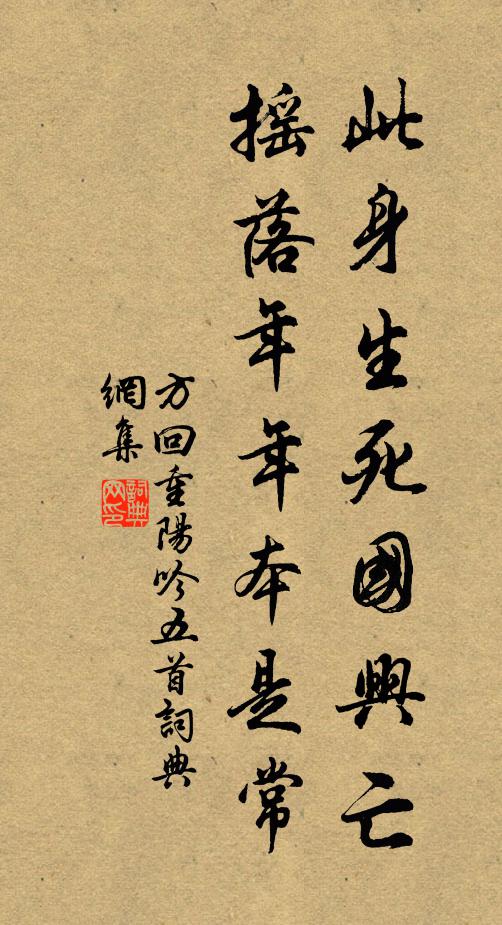 此身生死國興亡
搖落年年本是常
方回重陽吟五首詞典
網集
詞典
网印